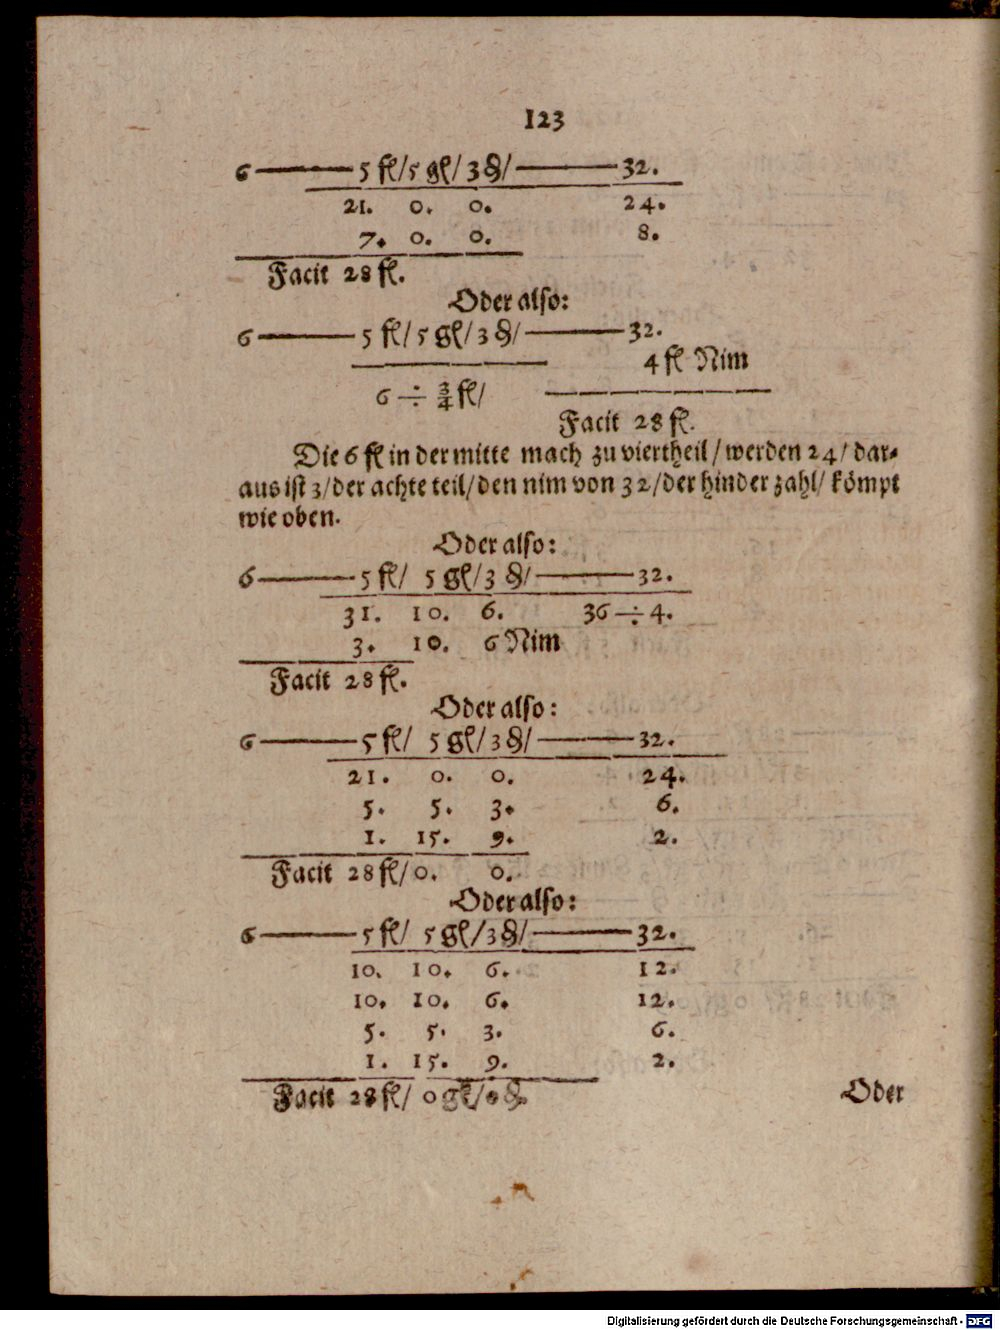 123
6 ——— 5 fl/ 5 gl/ 3 ₰/ ——— 32.
21. 0. 0. 24.
7. 0. 0. 8.
Facit 28 fl.
Oder also:
6 ——— 5 fl/ 5 gl/ 3 ₰/ ——— 32.
4 fl Nim
6 ÷ 3/4 fl/
Facit 28 fl.
Die 6 fl in der mitte mach zu viertheil / werden 24 / dar⸗
aus ist 3/ der achte teil/ den nim von 32/ der hinder zahl/ kömpt
wie oben.
Oder also:
6 ——— 5 fl/ 5 gl/ 3 ₰/ ——— 32.
31. 10. 6. 36 ÷ 4.
3. 10. 6 Nim
Facit 28 fl.
Oder also:
6 ——— 5 fl/ 5 gl/ 3 ₰/ ——— 32.
21. 0. 0. 24.
5. 5. 3. 6.
1. 15. 9. 2.
Facit 28 fl/ 0. 0.
Oder also:
6 ——— 5 fl/ 5 gl/ 3 ₰/ ——— 32.
10. 10. 6. 12.
10. 10. 6. 12.
5. 5. 3. 6.
1. 15. 9. 2.
Facit 28 fl/ 0 gl/ 0 ₰.
Oder
Digitalisierung gefördert durch die Deutsche Forschungsgemeinschaft - DFG